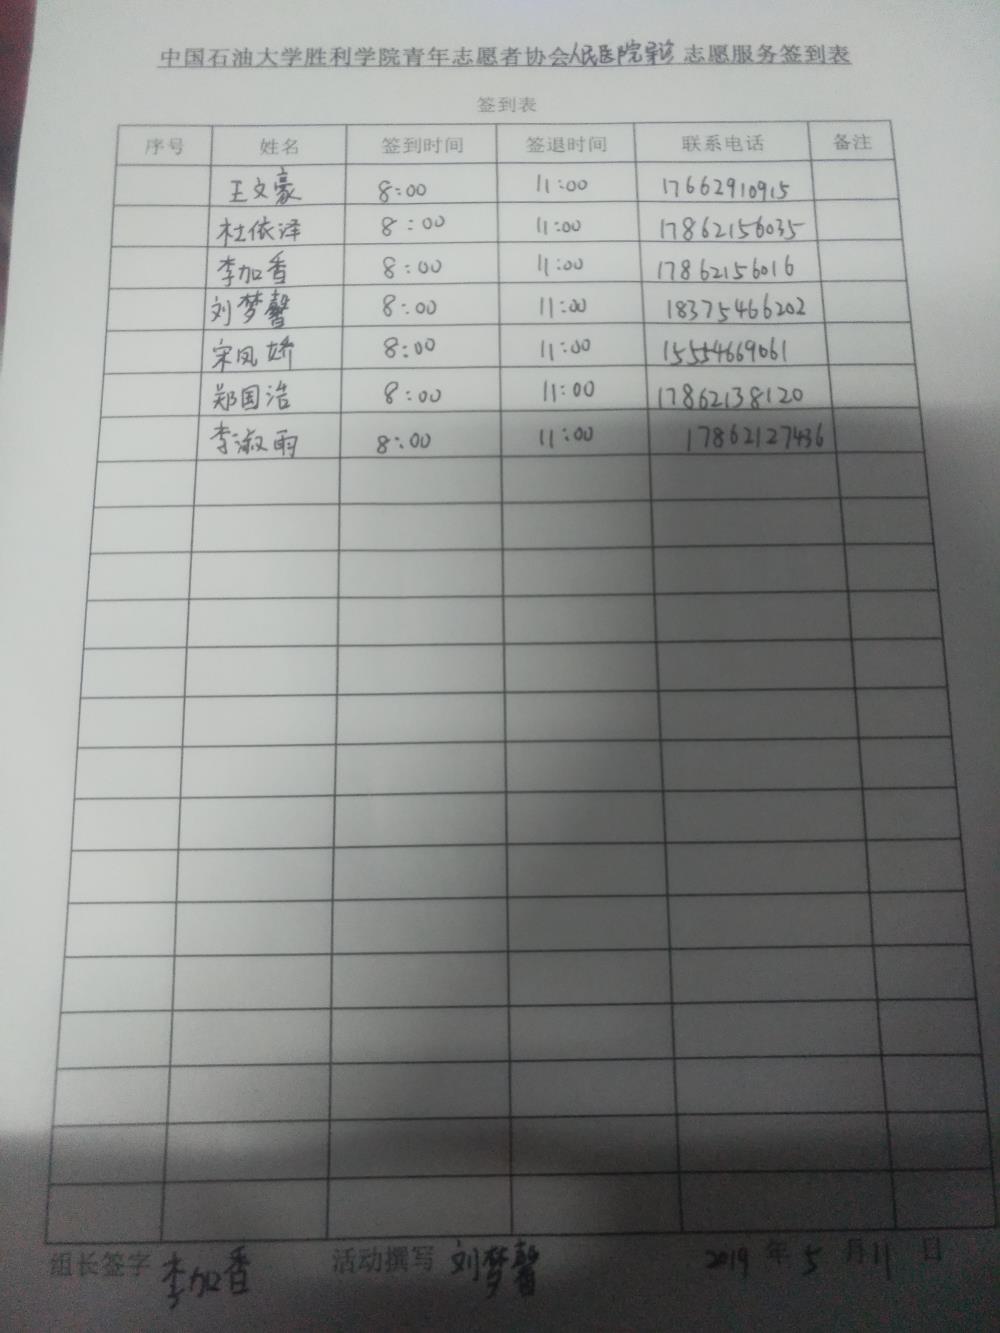 中国石油大学胜利学院青年志愿者协会人民医院导诊志愿服务签到表
签到表
序号 姓名 签到时间 签退时间 联系电话 备注
王文豪 8:00 11:00 17662910915
杜依泽 8:00 11:00 17862156035
李加香 8:00 11:00 17862156016
刘梦馨 8:00 11:00 18375466202
宋凤娇 8:00 11:00 15554669061
郑国浩 8:00 11:00 17862138120
李淑雨 8:00 11:00 17862127436
组长签字 李加香 活动撰写 刘梦馨 2019 年 5 月 11 日